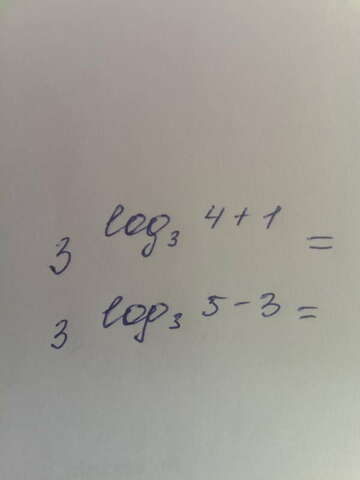 3 log₃ 4 + 1 =
3 log₃ 5 - 3 =